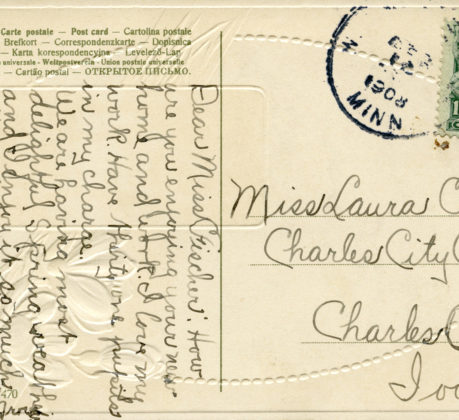 Carte postale — Post card — Cartolina postale
Brefkort — Correspondenzkarte — Dopisnica
— Karta korespondencyjna — Levelező-Lap
universale - Weltpostverein - Union postale universelle
— Cartão postal — ОТКРЫТОЕ ПИСЬМО.
MINN
1908
Dear Miss Fischer: How
are you enjoying your new
home and work. I love my
work. Have thirty one pupils
in my charge.
We are having most
delightful Spring weather
and I enjoy it so much.
Miss Laura C
Charles City C
Charles C
Iow
470